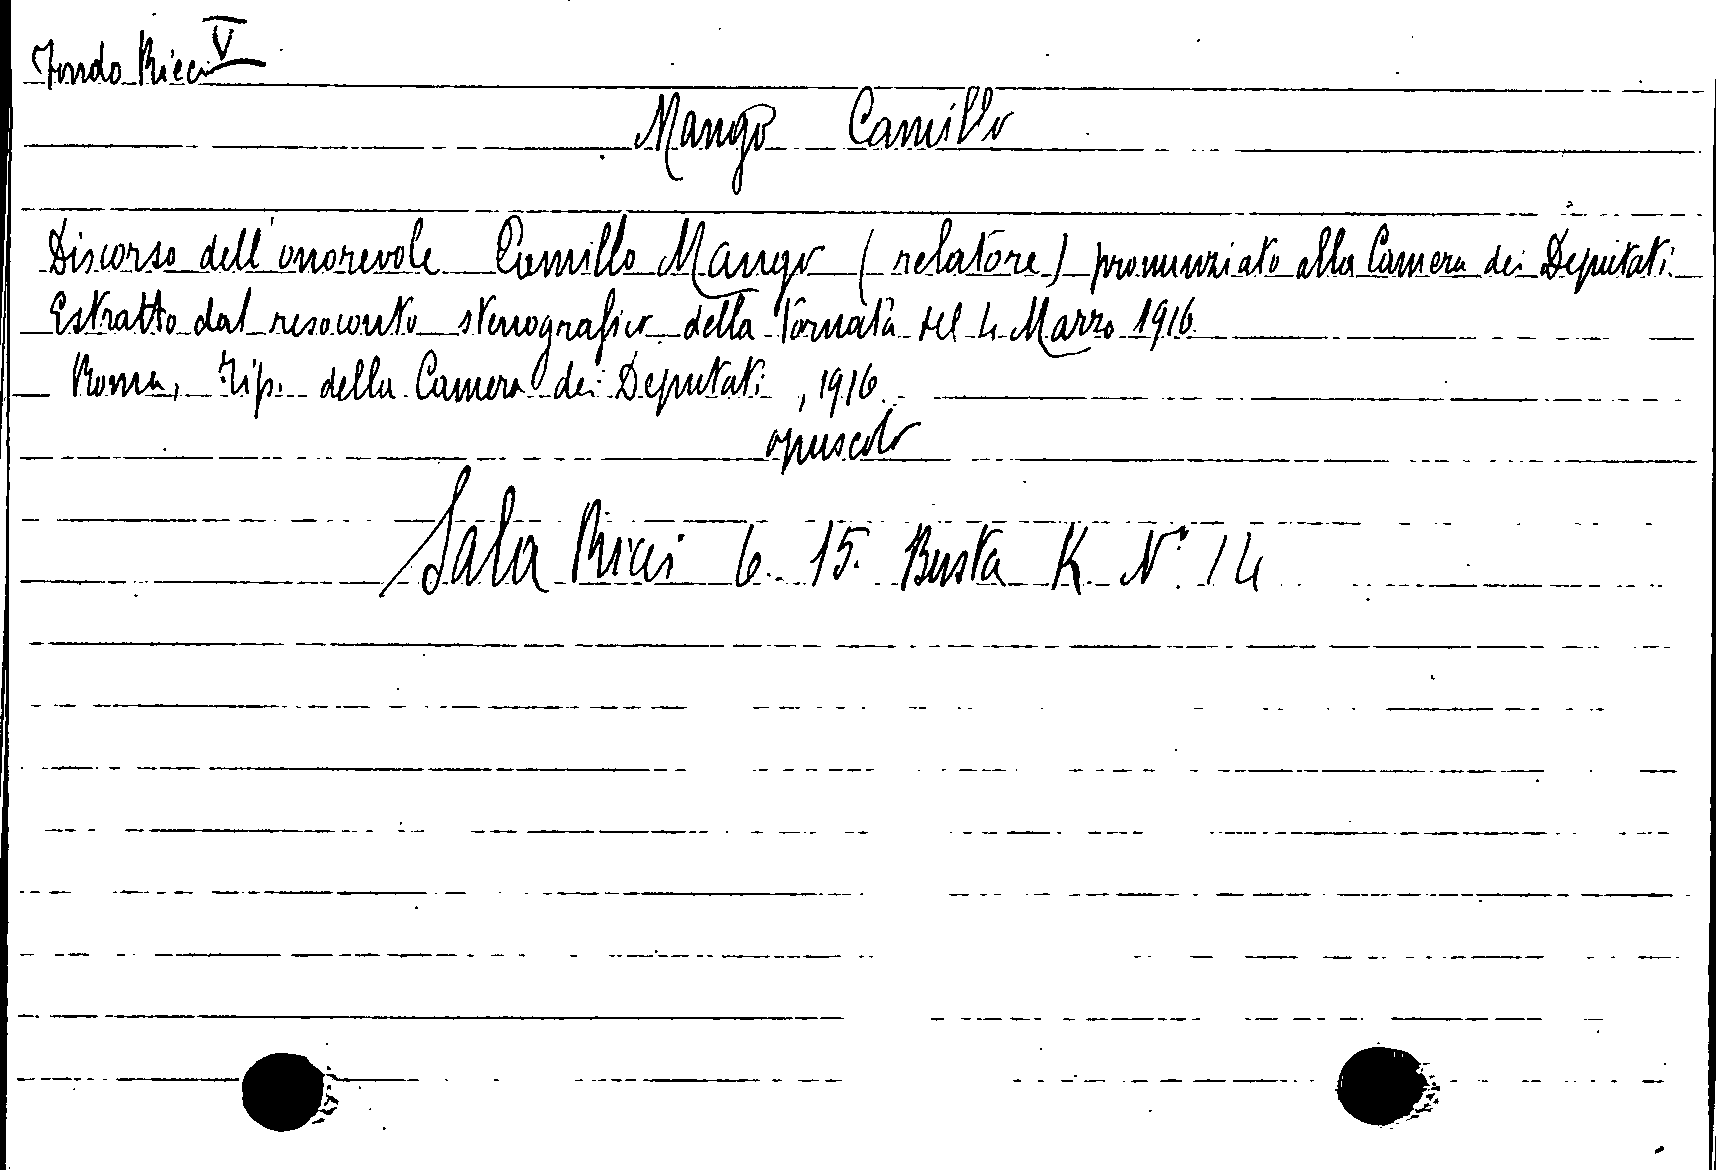 Fondo Ricci V
Mango Camillo
Discorso dell'onorevole Camillo Mango (relatore) pronunziato alla Camera dei Deputati.
Estratto dal resoconto stenografico della Tornata del 4 Marzo 1916.
Roma, Tip. della Camera dei Deputati, 1916.
opuscolo
Sala Ricci 6. 15. Busta K N° 14